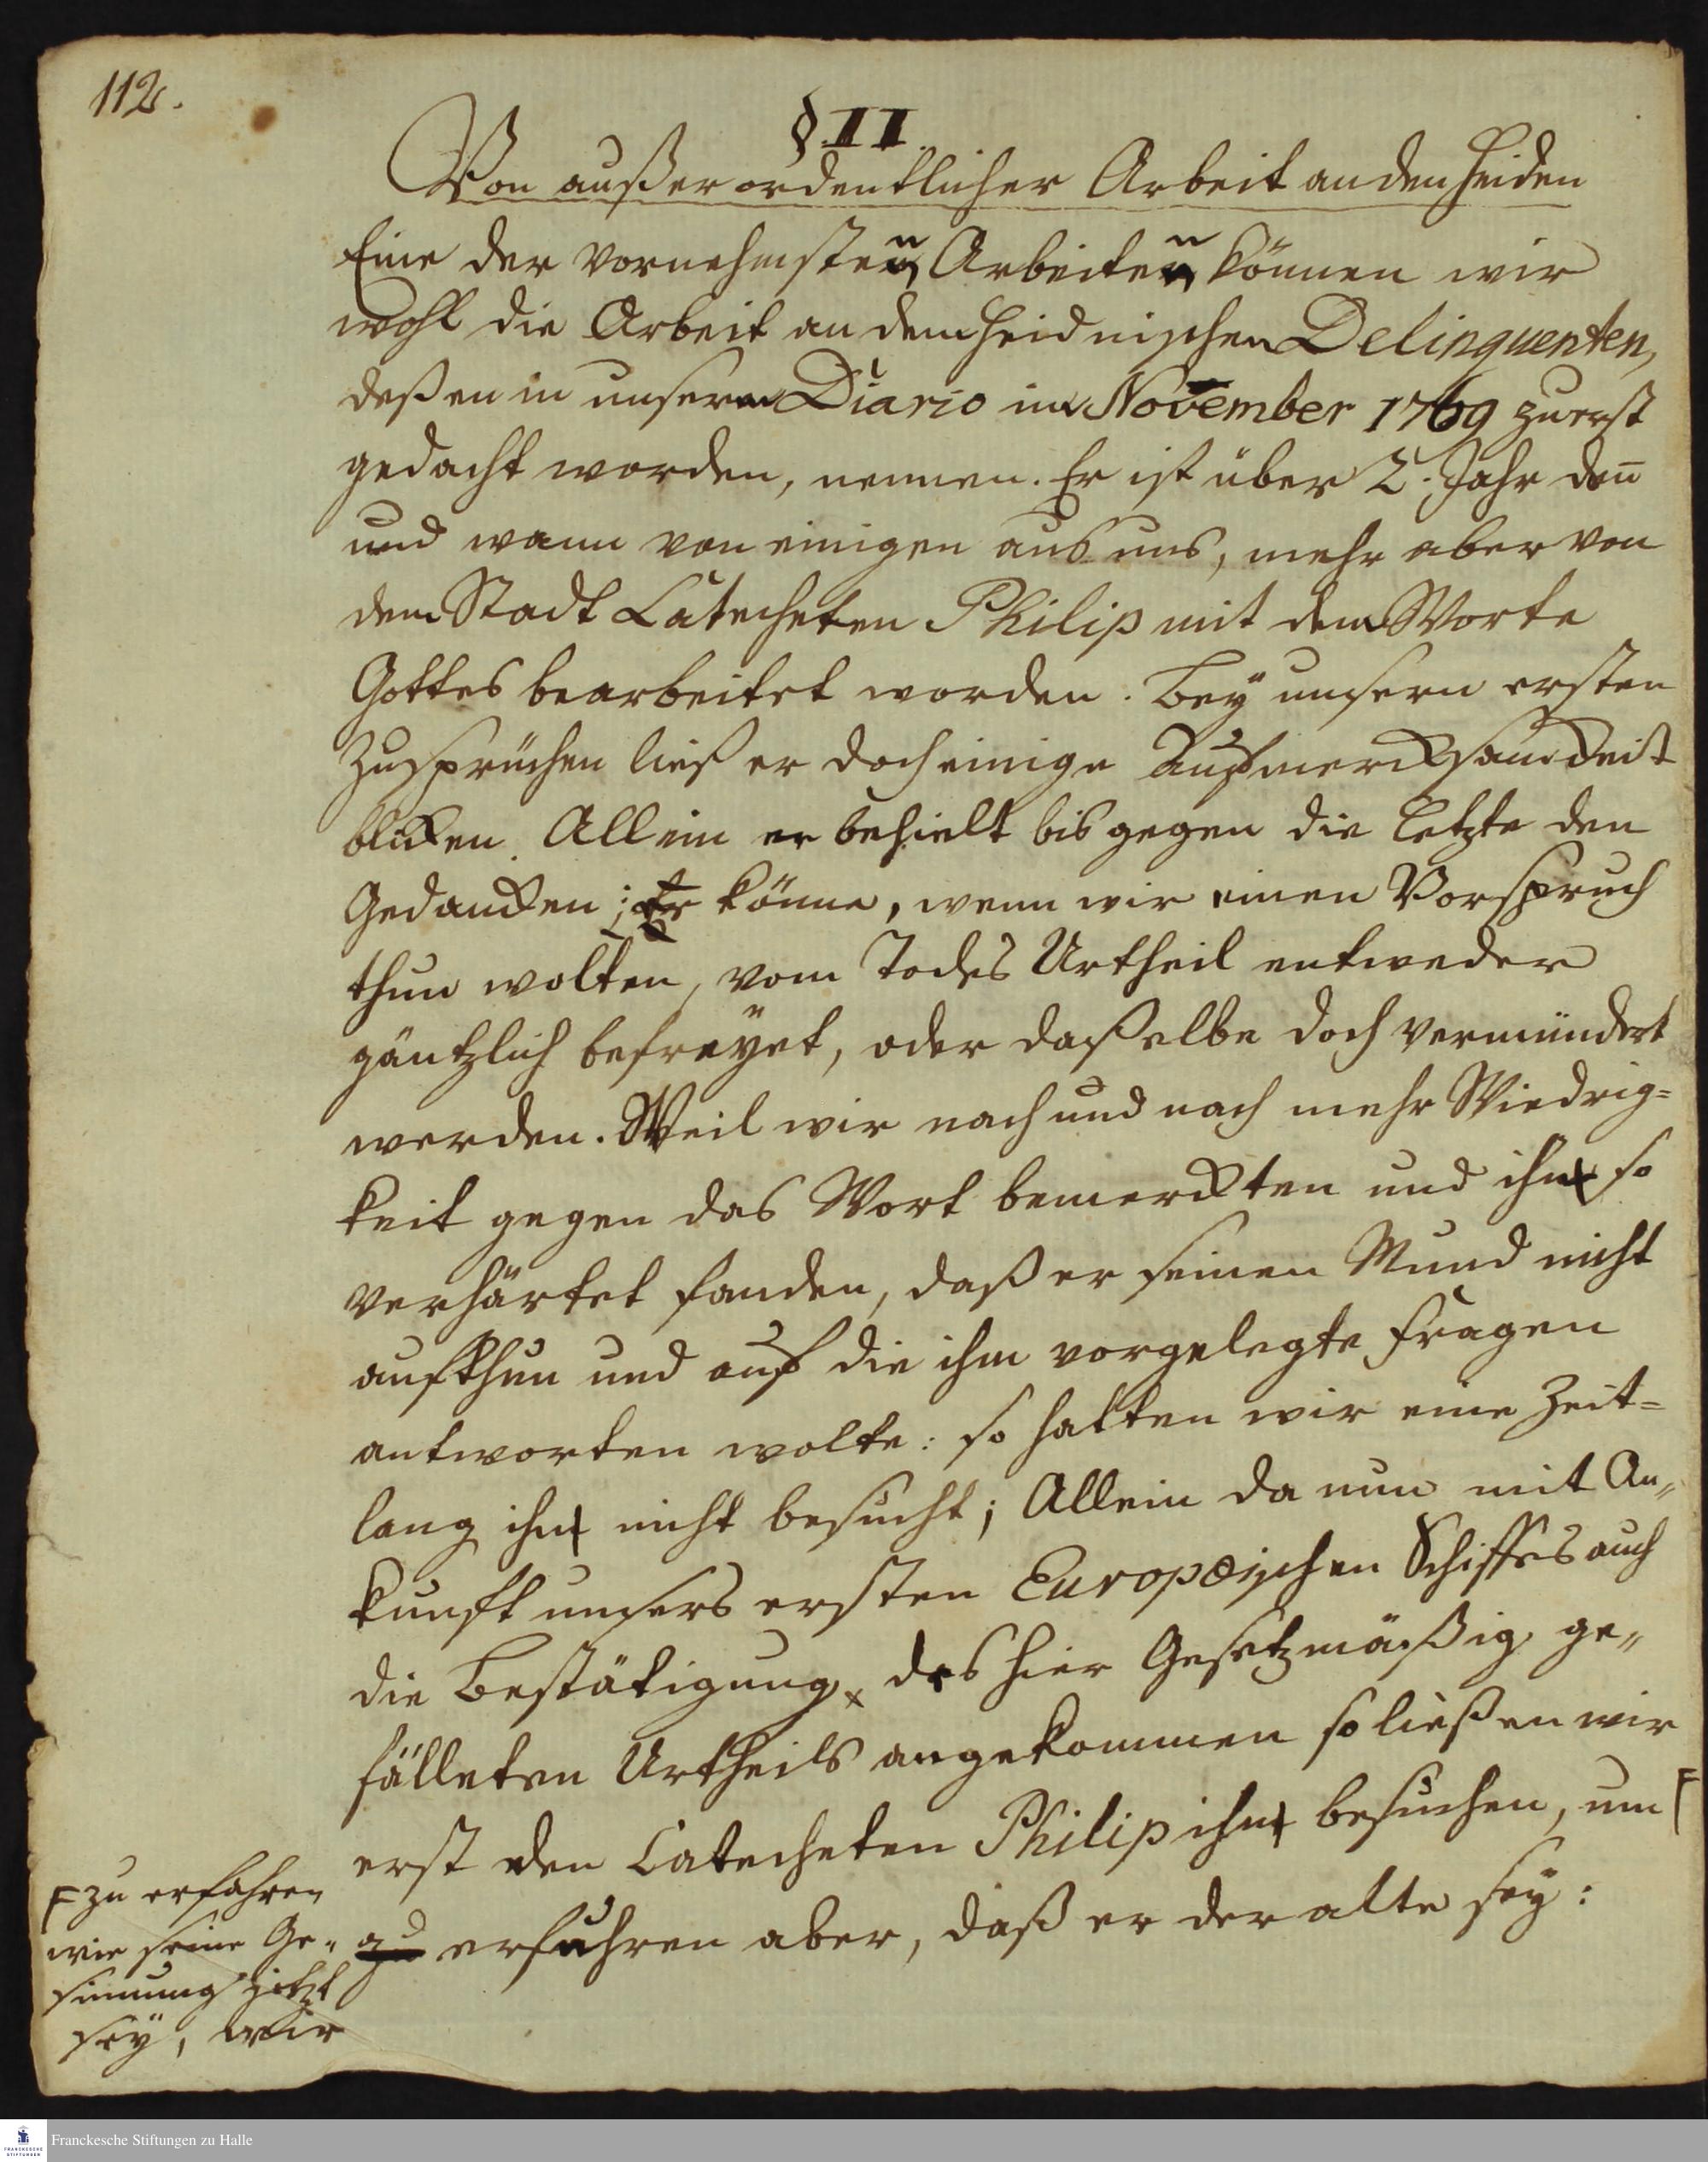 112.
§. II.
Von außerordentlicher Arbeit an den Heiden
Eine der vornehmsten Arbeiten können wir
wohl die Arbeit an dem heidnischen Delinquenten,
deßen in unserm Diario im November 1769 zuerst
gedacht worden, nennen. Er ist über 2. Jahr den̄
und wann von einigen aus uns, mehr aber von
dem Stadt Catecheten Philip mit dem Worte
Gottes bearbeitet worden. Bey unsern ersten
Zusprüchen ließ er doch einige Aufmercksamkeit
blicken. Allein er behielt bis gegen die letzte den
Gedancken; Er könne, wenn wir einen Vorspruch
thun wolten, vom Todes Urtheil entweder
gäntzlich befreyet, oder daßelbe doch vermindert
werden. Weil wir nach und nach mehr Wiedrig=
keit gegen das Wort bemerckten und ihn so
verhärtet fanden, daß er seinen Mund nicht
aufthun und auf die ihm vorgelegte Fragen
antworten wolte: so hatten wir eine Zeit=
lang ihn nicht besucht; Allein da nun mit An„
kunft unsers ersten Europæischen Schiffes auch
die Bestätigung des hier Gesetzmäßig ge„
fälleten Urtheils angekommen so ließen wir
erst den Catecheten Philip ihn besuchen, um F
erfuhren aber, daß er der alte sey:
F zu erfahren
wie seine Ge„
sinnung jetzt
sey, wir
Franckesche Stiftungen zu Halle